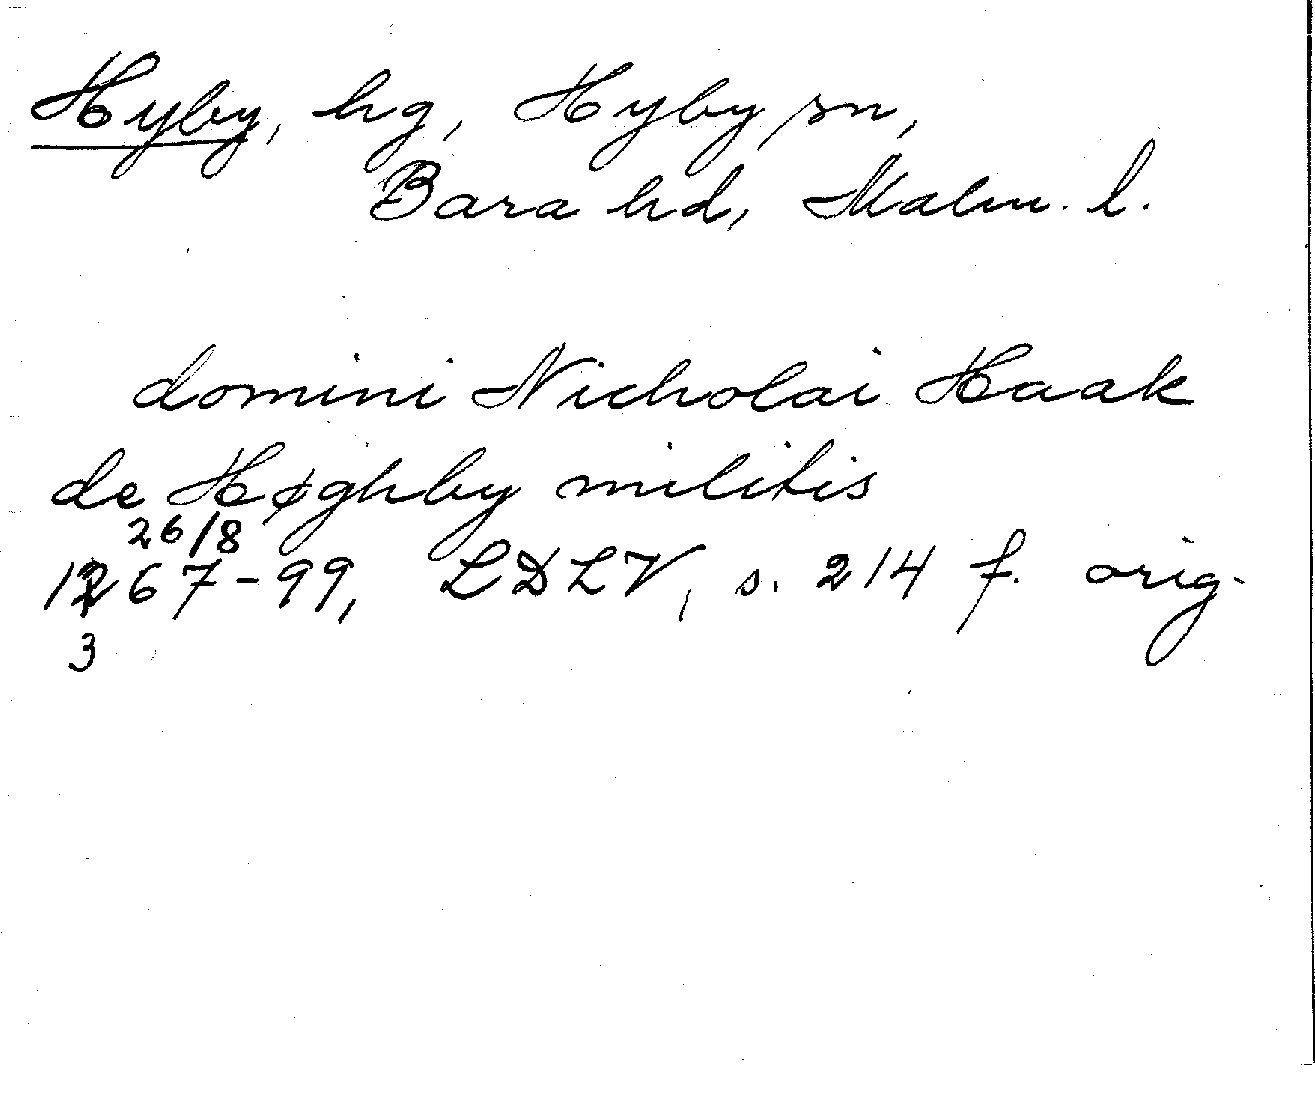 Hyby, hg, Hyby sn,
Bara hd, Malm. l.
domini Nicholai Haak
de Høghby militis
26/8
1267-99, LDLV, s. 214 f. orig.
3